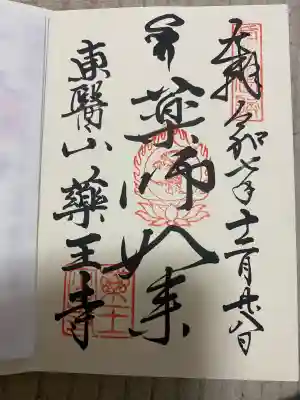 奉拝
令和七年十二月廿八日
薬師如来
東醫山薬王寺